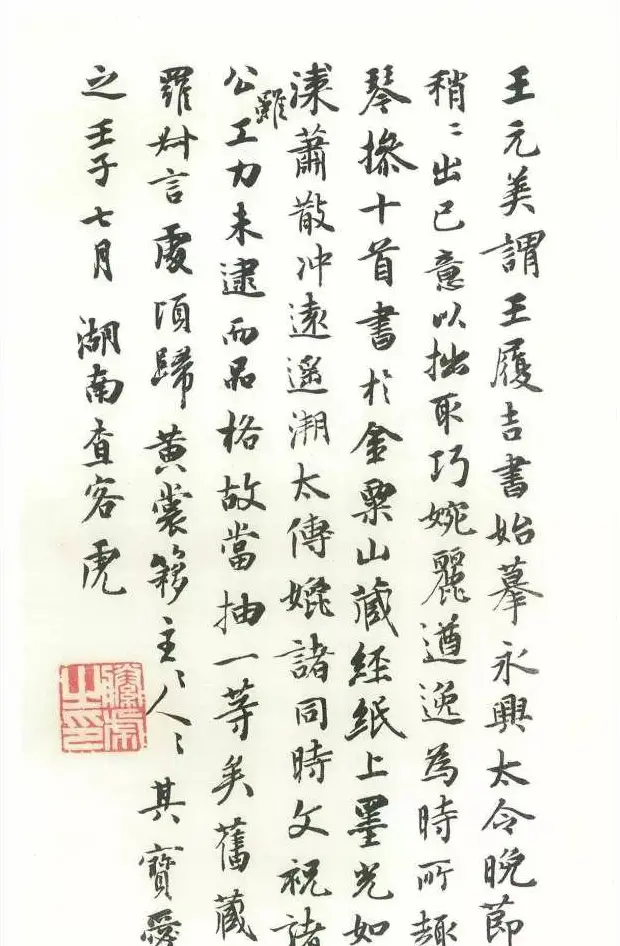 王元美謂王履吉書始摹永興太令晚節
稍〻出己意以拙取巧婉麗遒逸為時所趣
琴操十首書於金粟山藏經紙上墨光如
漆蕭散冲遠遥溯太傅媲諸同時文祝諸
公雖工力未逮而品格故當抽一等矣舊藏
羅尗言處頃歸黄裳簃主〻人〻其寶愛
之壬子七月 湖南查客虎